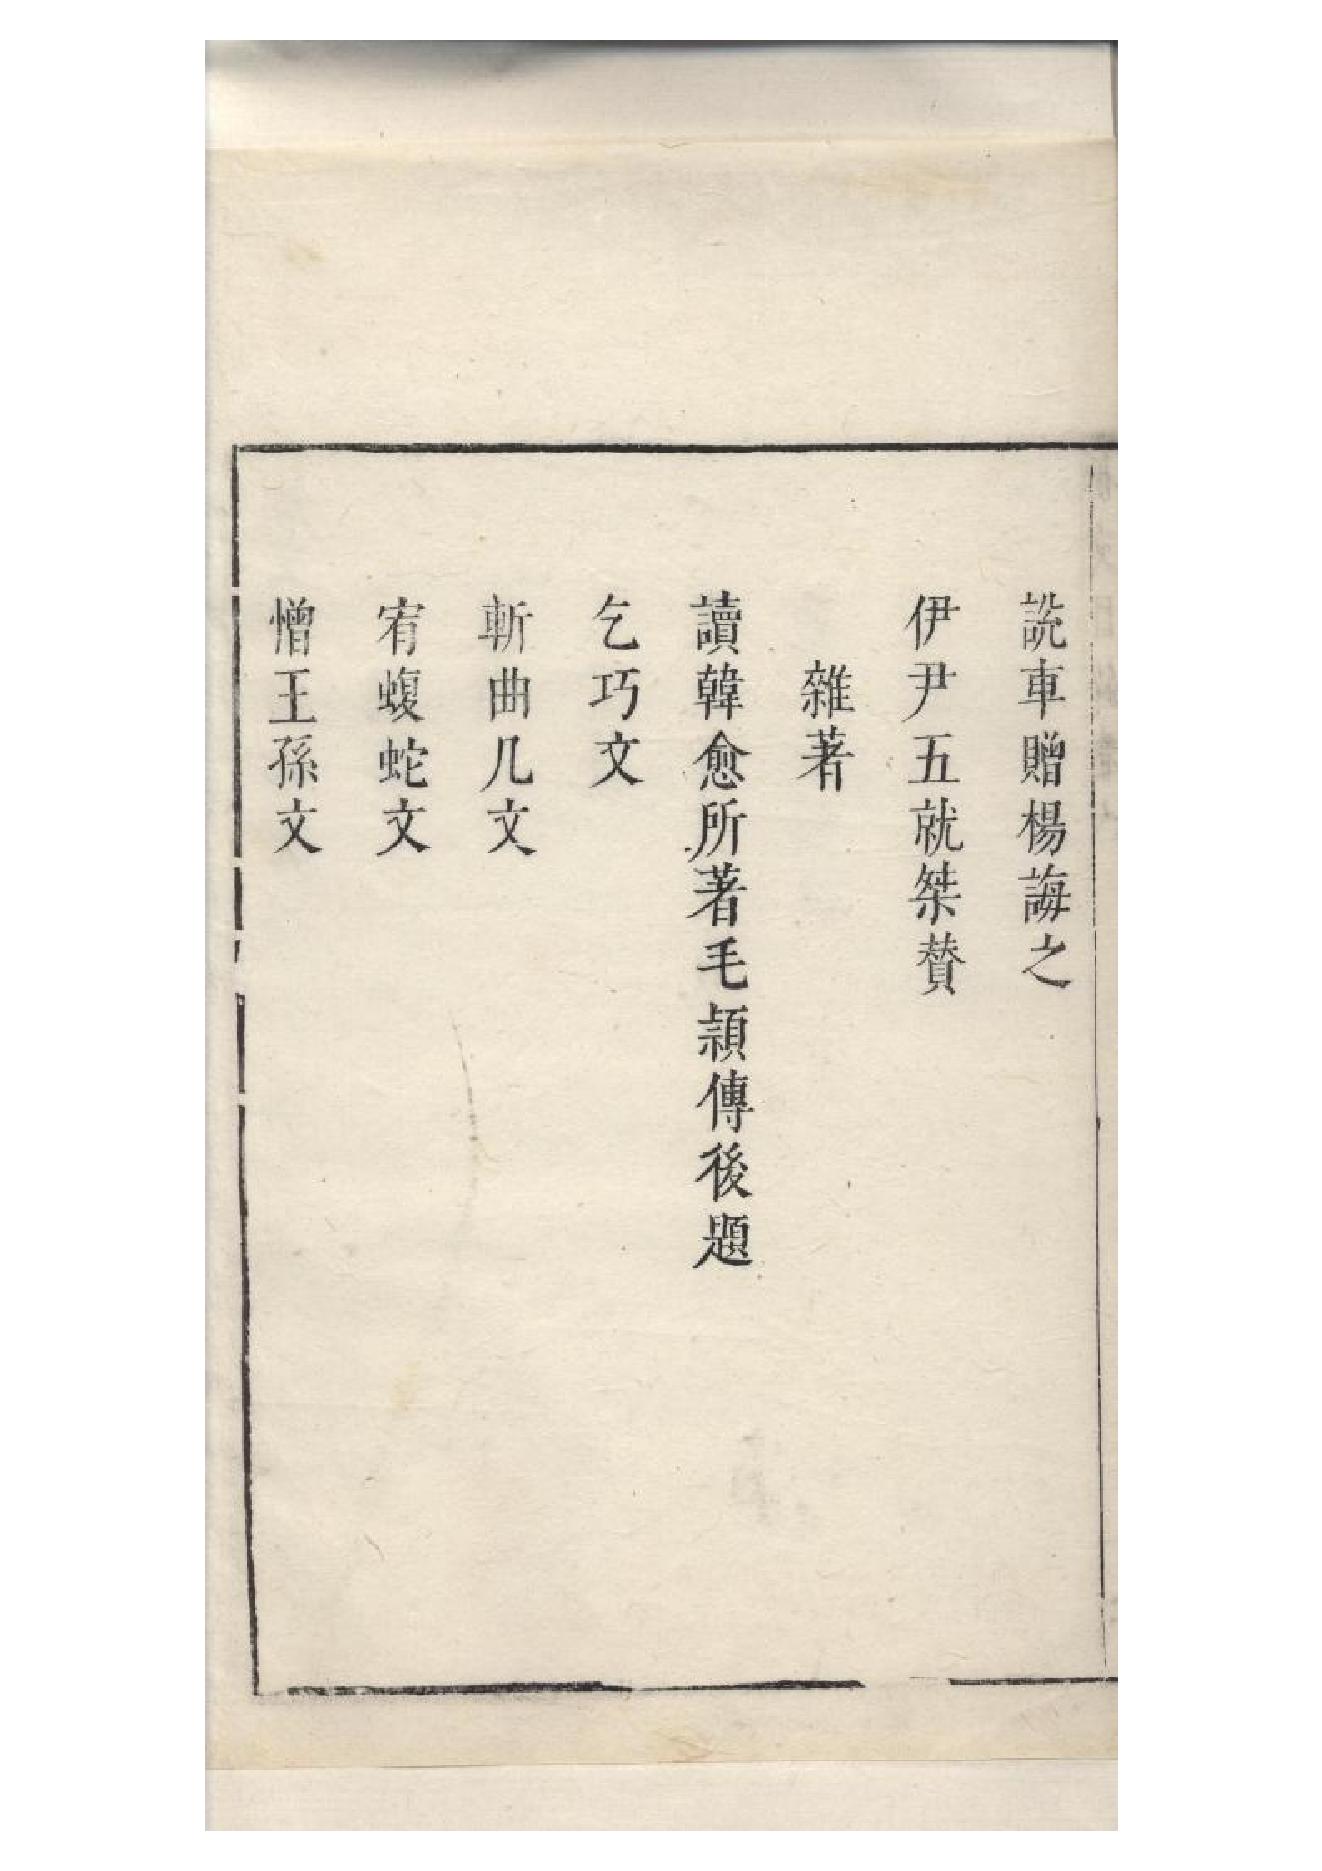 說車贈楊誨之
伊尹五就桀贊
雜著
讀韓愈所著毛頴傳後題
乞巧文
斬曲几文
宥蝮蛇文
憎王孫文